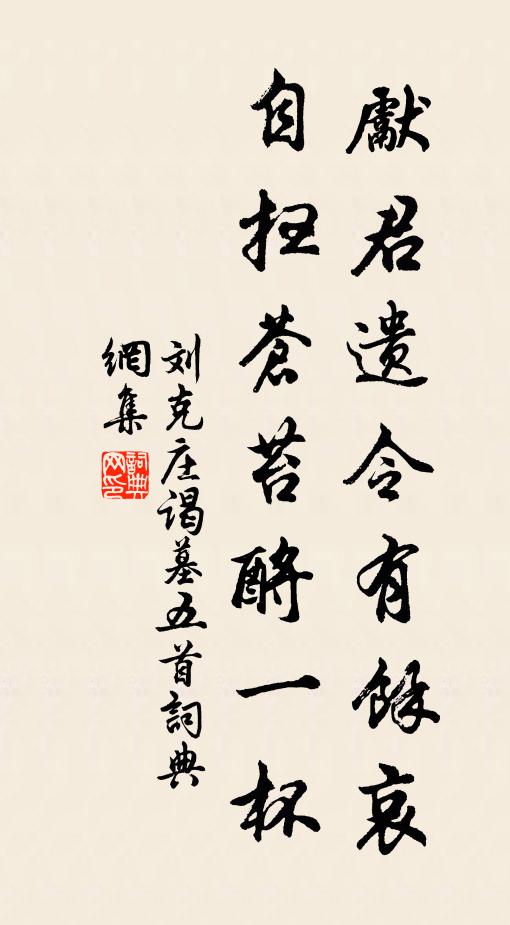 獻君遗令有餘哀
自扫蒼苔酹一杯
刘克庄谒墓五首詞典
網集
詞典网印